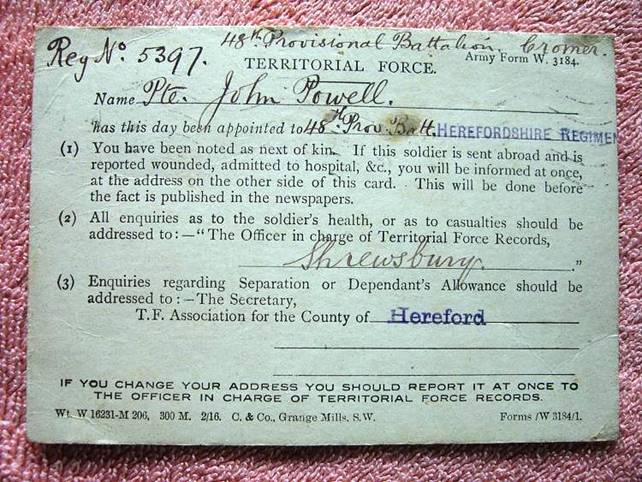 Reg No. 5397. 48th Provisional Battalion. Cromer.
TERRITORIAL FORCE. Army Form W. 3184.
Name Pte. John Powell.
has this day been appointed to 48th Prov. Batt. HEREFORDSHIRE REGIMEN
(1) You have been noted as next of kin. If this soldier is sent abroad and is
reported wounded, admitted to hospital, &c., you will be informed at once,
at the address on the other side of this card. This will be done before
the fact is published in the newspapers.
(2) All enquiries as to the soldier's health, or as to casualties should be
addressed to:—"The Officer in charge of Territorial Force Records,
Shrewsbury."
(3) Enquiries regarding Separation or Dependant's Allowance should be
addressed to:—The Secretary,
T.F. Association for the County of Hereford
IF YOU CHANGE YOUR ADDRESS YOU SHOULD REPORT IT AT ONCE TO
THE OFFICER IN CHARGE OF TERRITORIAL FORCE RECORDS.
Wt. W 16231-M 206. 300 M. 2/16. C. & Co., Grange Mills, S.W. Forms/W 3184/1.